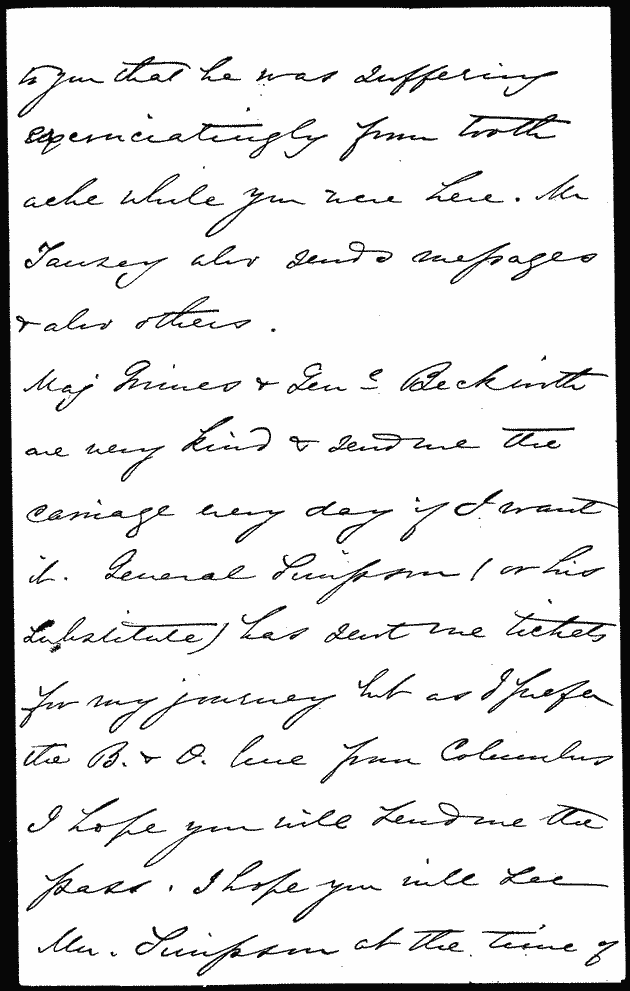 to you that he was suffering
excruciatingly from tooth
ache while you were here. Mr
Tansey also sends messages
& also others.
Maj Grimes & Genl Beckwith
are very kind & send me the
carriage every day if I want
it. General Simpson (or his
substitute) has sent me tickets
for my journey but as I prefer
the B. & O. line from Columbus
I hope you will send me the
pass. I hope you will see
Mr. Simpson at the time of